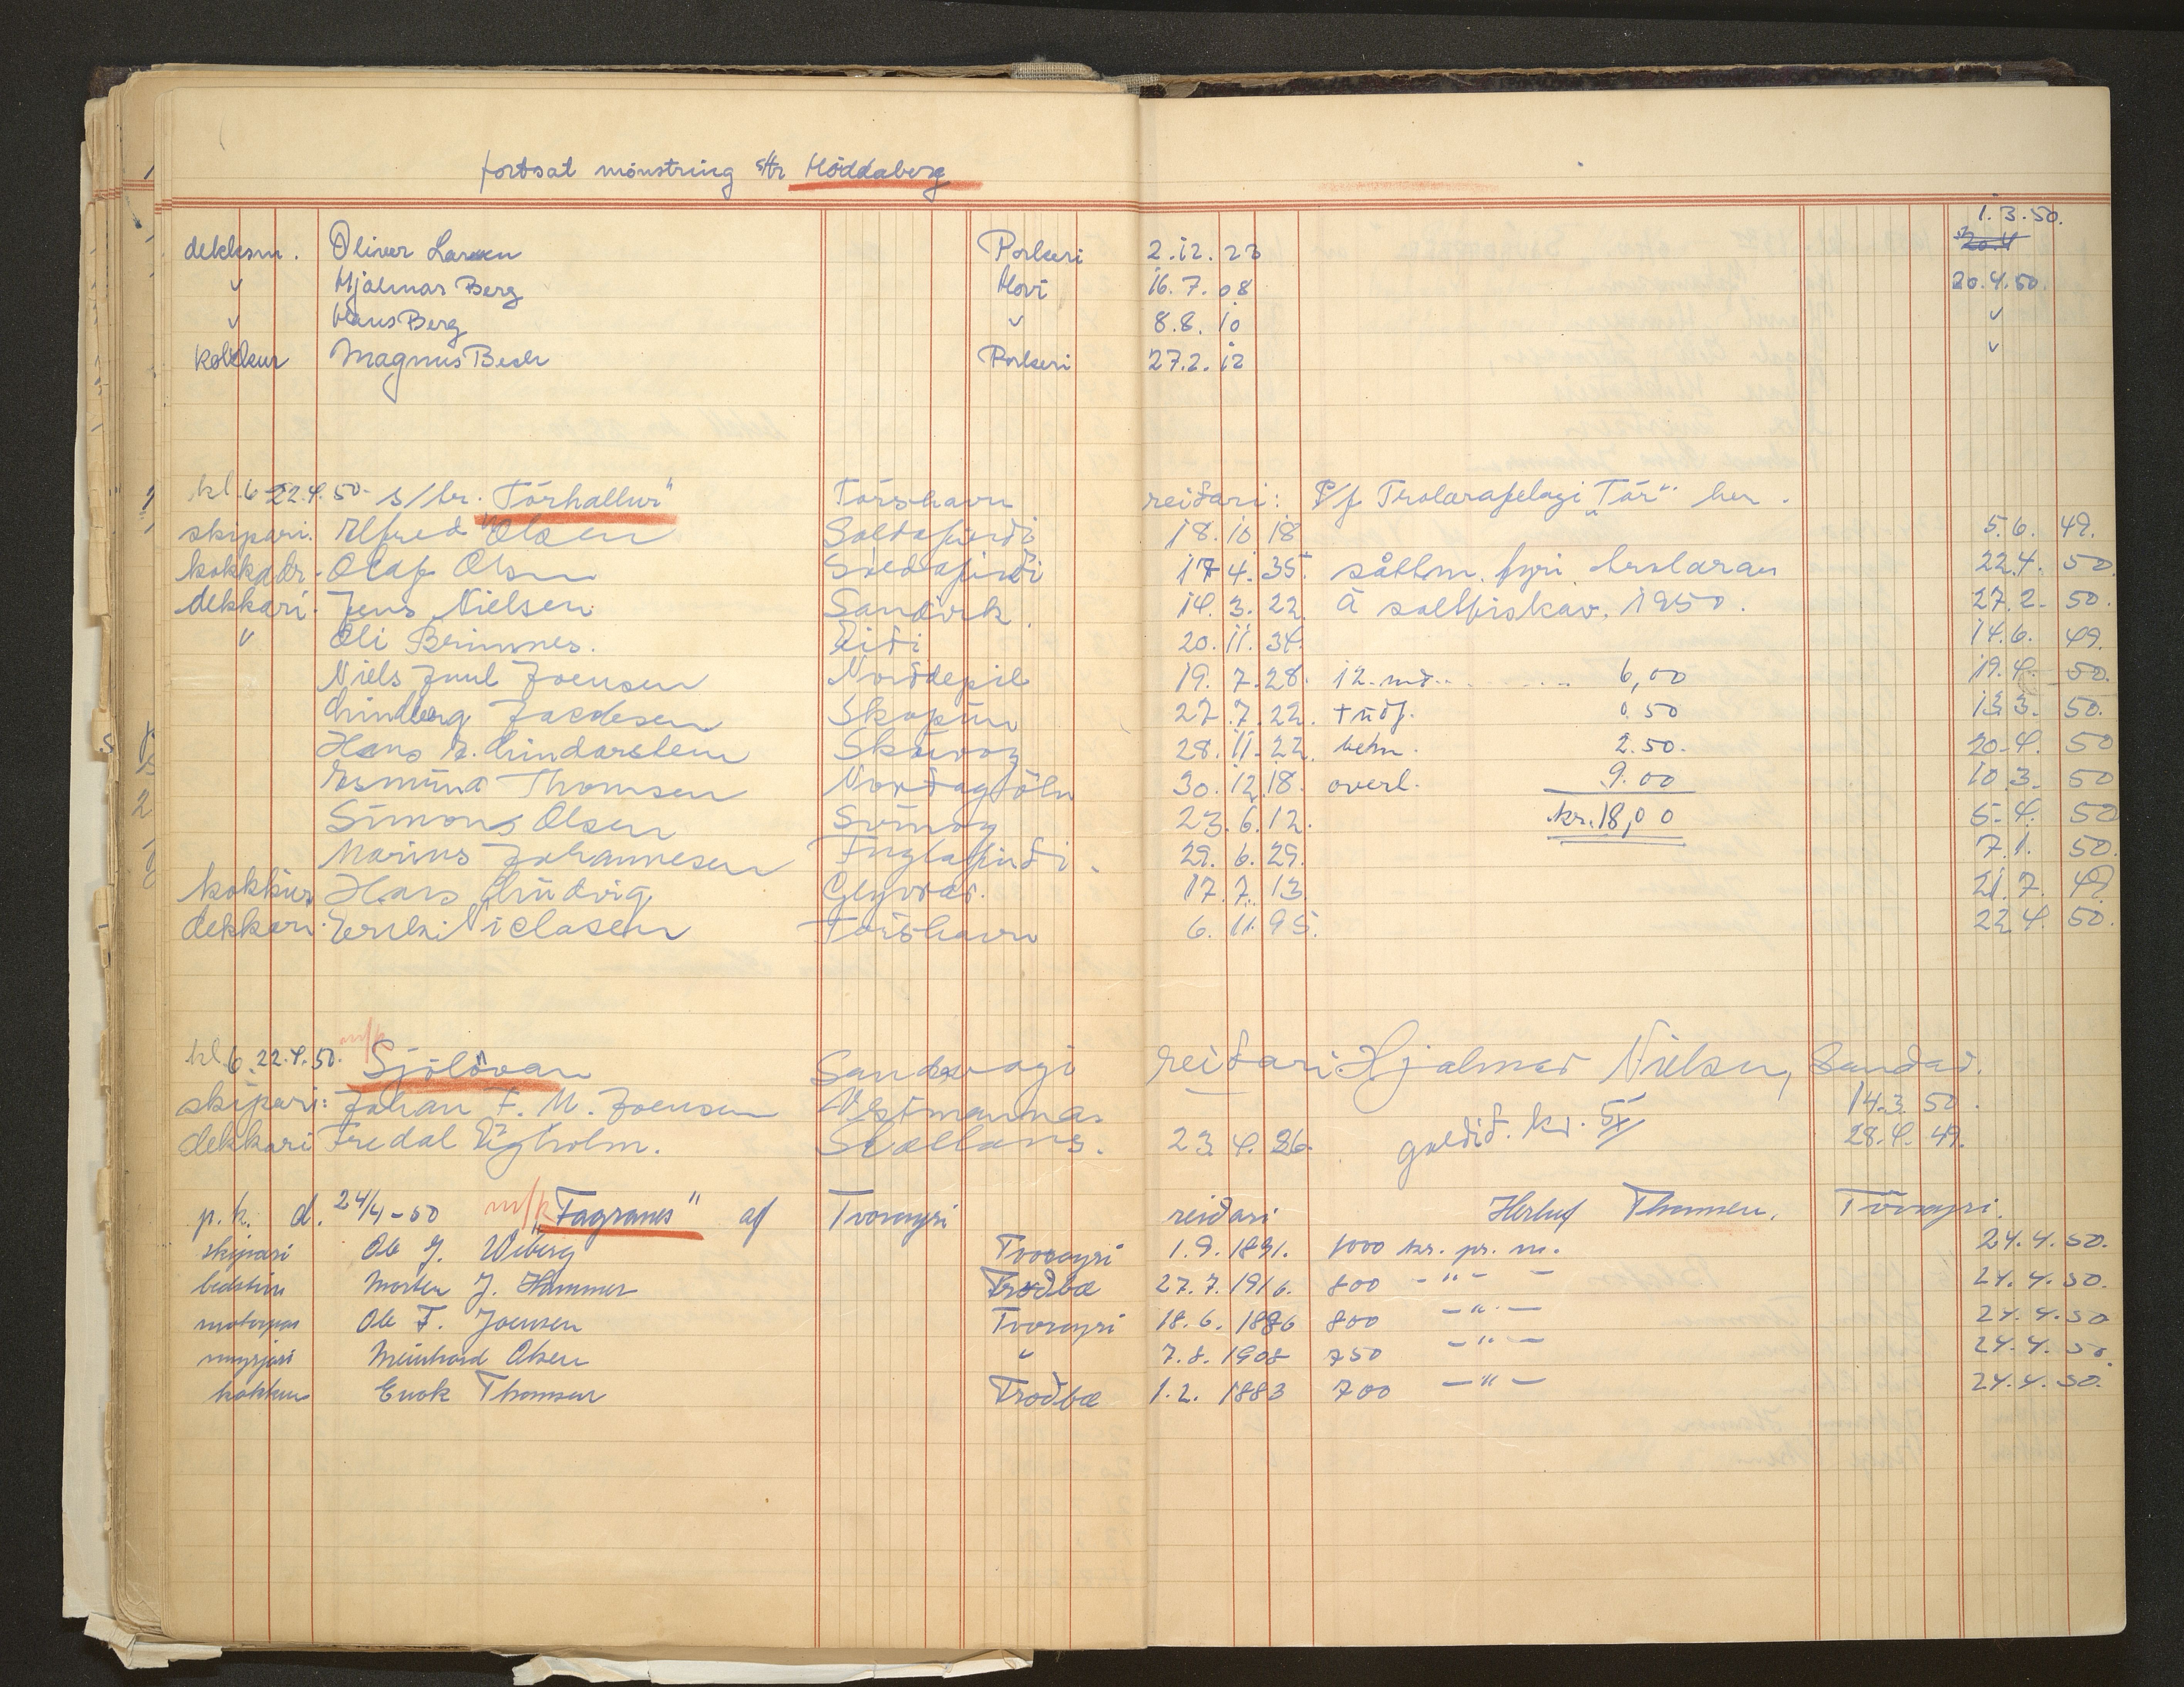 fortsat mønstring s/tr Høddaberg
1.3.50.
dekksm. Oliver Larsen Porkeri 2.12.23 20.4
" Hjalmar Berg Hovi 16.7.08 20.4.50.
" Hans Berg " 8.8.10 "
kokkur Magnus Bech Porkeri 27.2.12 "
kl. 6 22.4.50. s/tr. "Tórhallur" Tórshavn reiðari: P/f Trolarafelagi "Tór" her.
skipari. Alfred Olsen Saltafirði 18.10.18 5.6.49.
kokkadr. Olaf Olsen Saltafirði 17.4.35. sáttm. fyri trolaran 22.4.50.
dekkari. Jens Nielsen Sandvík. 14.3.22. á saltfiskav. 1950. 27.2.50.
" Óli Brimnes. Eiði 20.11.34. 14.6.49.
Niels Juul Joensen Norðdepil 19.7.28. 12. md. ..... 6,00 19.4.50.
Lindberg Jacobsen Skopun 27.7.22. + údf. 0.50 13.3.50.
Hans E. Lindarstein Skúvoy 28.11.22. betn. 2.50. 20.4.50
Asmund Thomsen Norðagøtu 30.12.18. overl. 9.00 10.3.50
Simons Olsen Svínoy 23.6.12. kr. 18,00 5.4.50
Marius Johannesen Fuglafirði. 29.6.29. 7.1.50.
kokkur Hans Lúdvig Glyvrar. 17.7.13. 21.7.49.
dekkari. Niclasen Tórshavn 6.11.95. 22.4.50.
kl. 6. 22.4.50. m/k Sjólóvan Sandavági reiðari: Hjalmar Nielsen, Sandav.
skipari: Johan F. M. Joensen Vestmanna. 14.3.50.
dekkari Fredal Egholm. Skállavs. 23.4.26. goldið. kr. 5x/ 28.4.49.
p.k. d. 24/4-50 m/k "Fagranes" af Tvøroyri reiðari Herluf Thomsen, Tvøroyri.
skipari Ole J. Wiberg Tvøroyri 1.9.1891. 1000 kr. pr. m. 24.4.50.
bedstim Morten J. Hammer Froðbæ 27.7.1916. 800 - " - 24.4.50.
motorpas Ole F. Joensen Tvøroyri 18.6.1886 800 - " - 24.4.50
smyrjari Meinhard Olsen " 7.8.1908 750 - " - 24.4.50.
kokkur Enok Thomsen Froðbæ 1.2.1883 700 - " - 24.4.50.